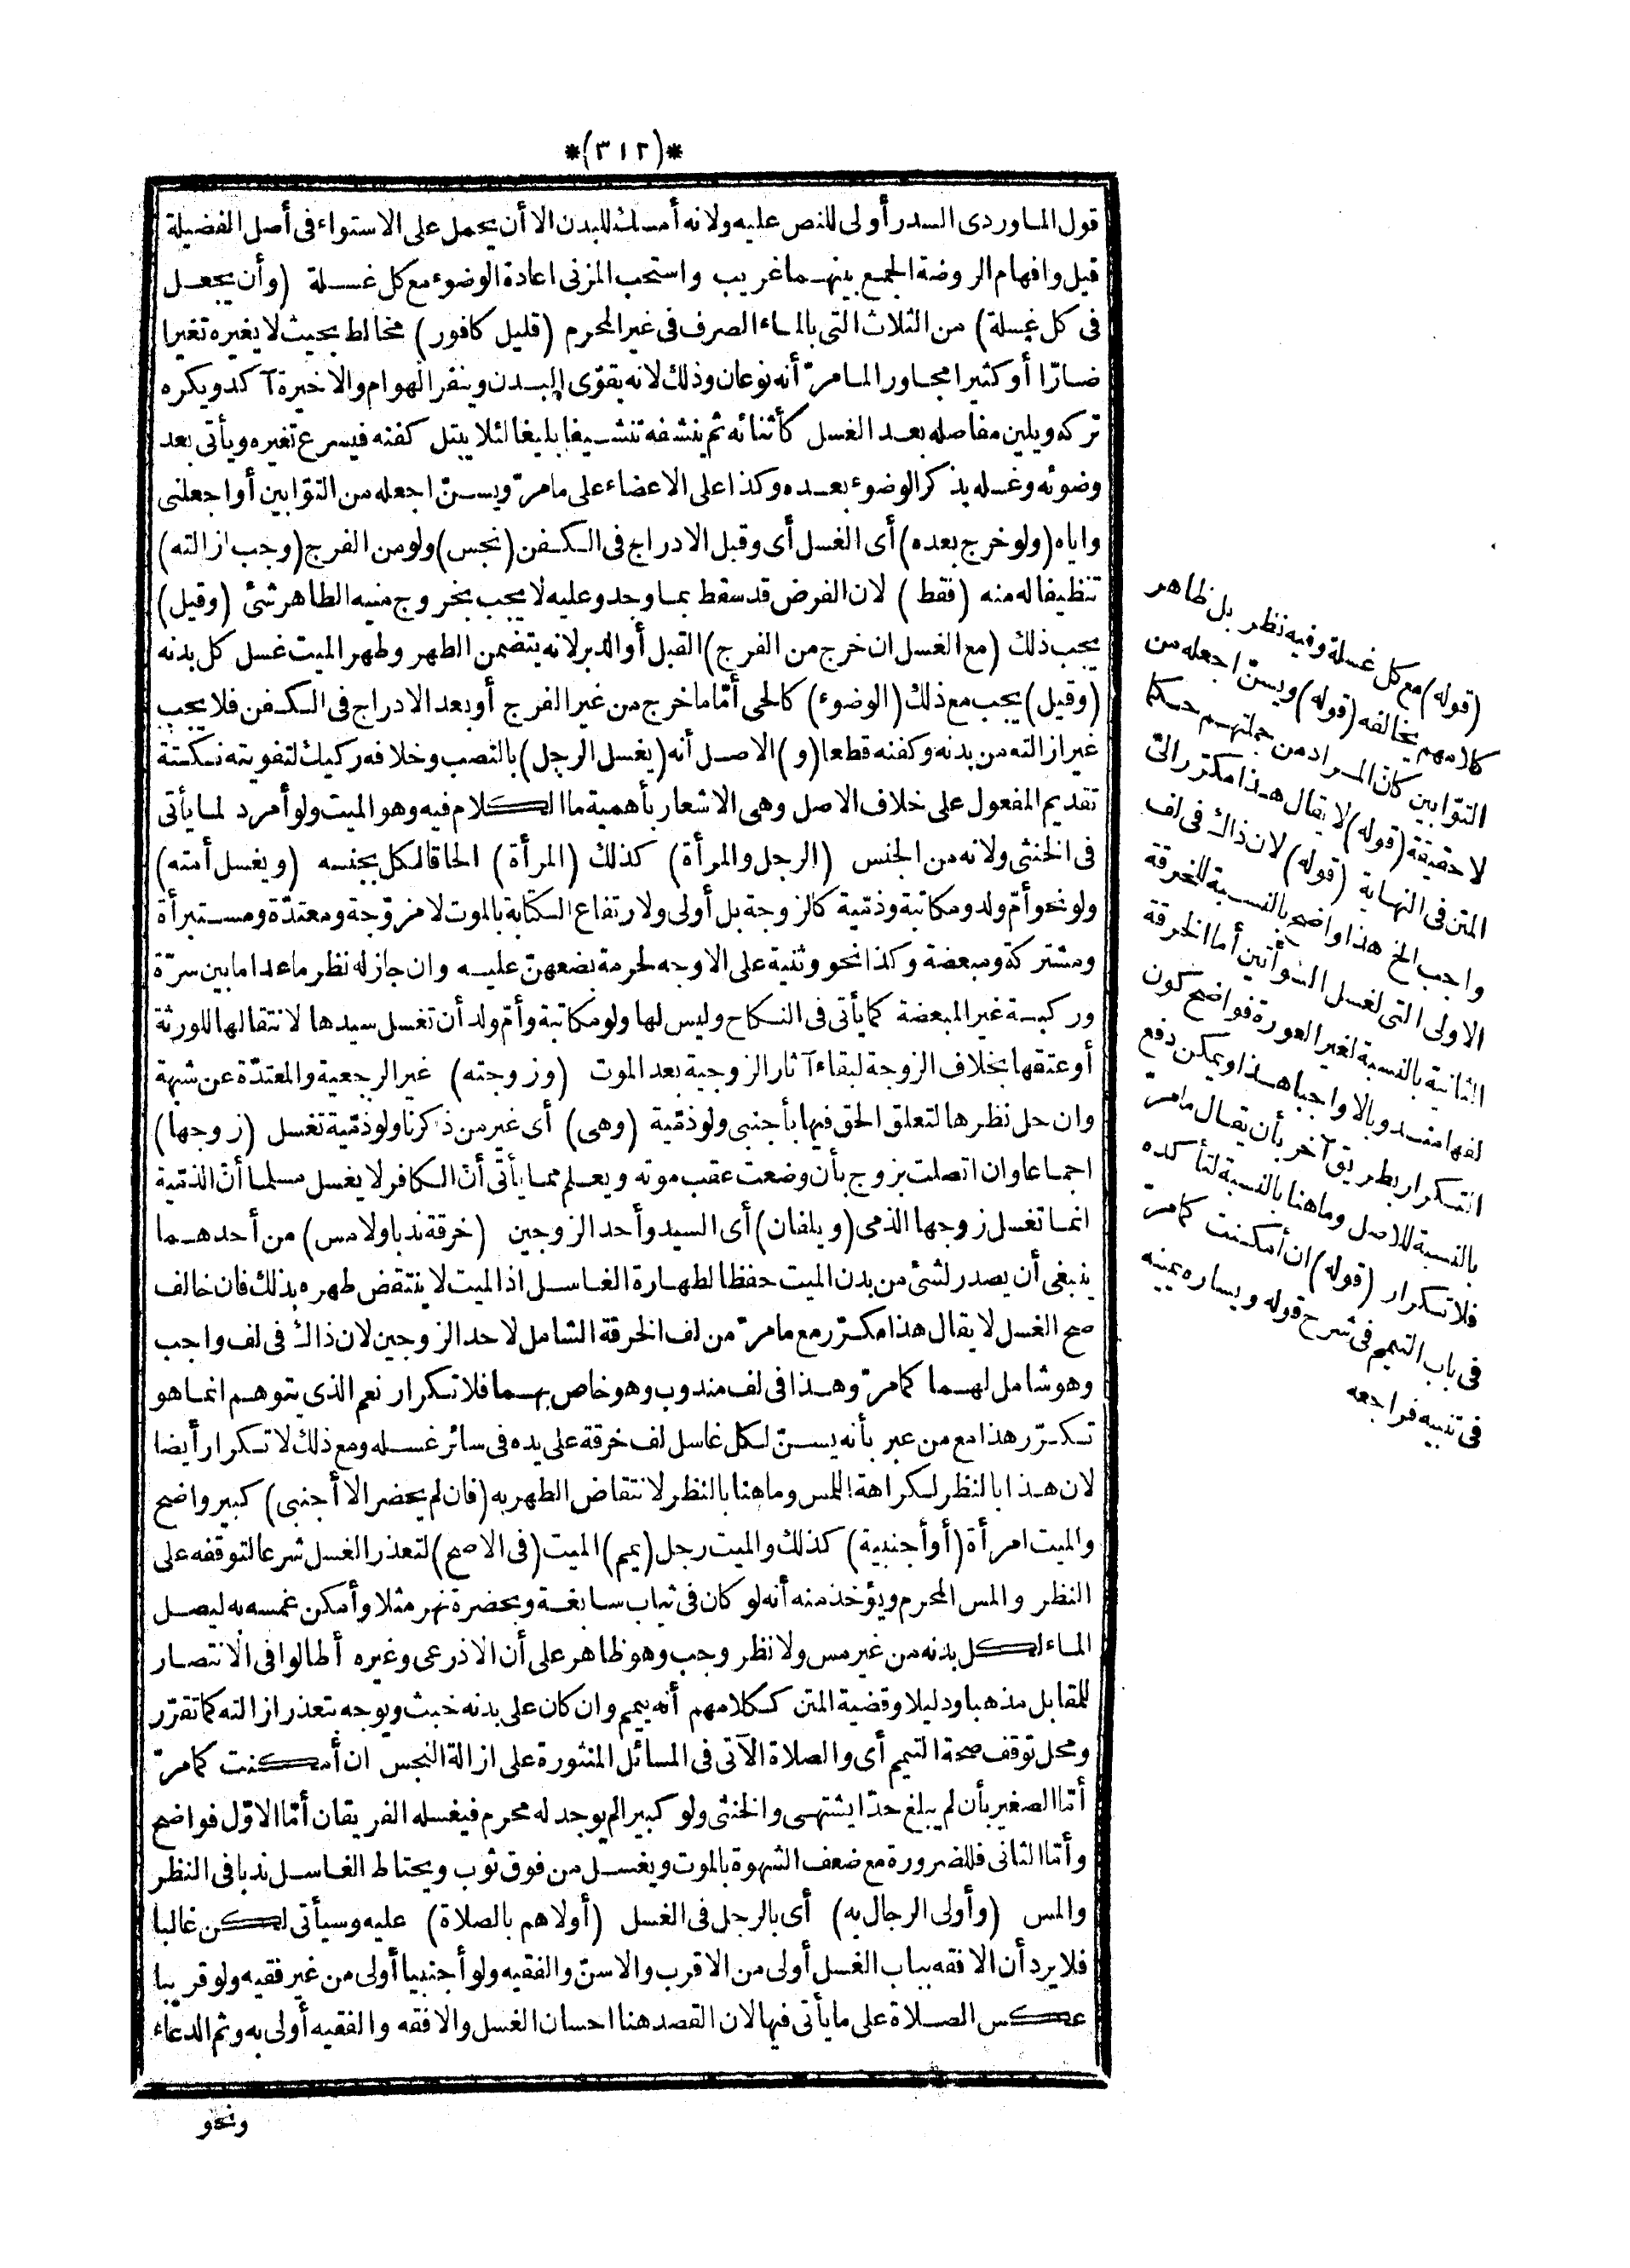 *(٣١٢)*
قول الماوردى السدر أولى للنص عليه ولانه أمسك للبدن الا أن يحمل على الاستواء فى أصل الفضيلة
قيل وافهام الروضة الجمع بينهما غريب واستحب المزنى اعادة الوضوء مع كل غسلة (وأن يجعل
فى كل غسلة) من الثلاث التى بالماء الصرف فى غير المحرم (قليل كافور) مخالط بحيث لا يغيره تغيرا
ضارّا أو كثيرا مجاور المامرّ أنه نوعان وذلك لانه يقوّى البدن وينفر الهوام والاخيرة آكد ويكره
تركه ويلين مفاصله بعد الغسل كأثنائه ثم ينشفه تنشيفا بليغا لئلا يبتل كفنه فيسرع تغيره ويأتى بعد
وضوئه وغسله بذكر الوضوء بعده وكذا على الاعضاء على مامرّ ويسنّ اجعله من التوّابين أو اجعلنى
واياه (ولو خرج بعده) أى الغسل أى وقبل الادراج فى الكفن (نجس) ولو من الفرج (وجب ازالته)
تنظيفا له منه (فقط) لان الفرض قد سقط بما وجد وعليه لا يجب بخروج منيه الطاهر شئ (وقيل)
يجب ذلك (مع الغسل ان خرج من الفرج) القبل أو الدبر لانه يتضمن الطهر وطهر الميت غسل كل بدنه
(وقيل) يجب مع ذلك (الوضوء) كالحى أمّا ما خرج من غير الفرج أو بعد الادراج فى الكفن فلا يجب
غير ازالته من بدنه وكفنه قطعا (و) الاصل أنه (يغسل الرجل) بالنصب وخلافه ركيك لتفويته نكتة
تقديم المفعول على خلاف الاصل وهى الاشعار بأهمية ما الكلام فيه وهو الميت ولو أمرد لما يأتى
فى الخنثى ولانه من الجنس (الرجل والمرأة) كذلك (المرأة) الحاقا لكل بجنسه (ويغسل أمته)
ولو نحو أمّ ولد ومكاتبة وذمّية كالزوجة بل أولى ولارتفاع الكتابة بالموت لا مزوّجة ومعتدّة ومستبرأة
ومشتركة ومبعضة وكذا نحو وثنية على الاوجه لحرمة بضعهنّ عليه وان جاز له نظر ما عدا ما بين سرّة
وركبة غير المبعضة كما يأتى فى النكاح وليس لها ولو مكاتبة وأمّ ولد أن تغسل سيدها لانتقالها للورثة
أو عتقها بخلاف الزوجة لبقاء آثار الزوجية بعد الموت (وزوجته) غير الرجعية والمعتدّة عن شبهة
وان حل نظرها لتعلق الحق فيها بأجنبى ولو ذمّية (وهى) أى غير من ذكرنا ولو ذمّية تغسل (زوجها)
اجماعا وان اتصلت بزوج بأن وضعت عقب موته ويعلم مما يأتى أنّ الكافر لا يغسل مسلما أنّ الذمّية
انما تغسل زوجها الذمى (ويلفان) أى السيد وأحد الزوجين (خرقة ندبا ولا مس) من أحدهما
ينبغى أن يصدر لشئ من بدن الميت حفظا لطهارة الغاسل اذ الميت لا ينتقض طهره بذلك فان خالف
صح الغسل لا يقال هذا مكرّر مع مامرّ من لف الخرقة الشامل لاحد الزوجين لان ذاك فى لف واجب
وهو شامل لهما كمامرّ وهذا فى لف مندوب وهو خاص بهما فلا تكرار نعم الذى يتوهم انما هو
تكرّر هذا مع من عبر بأنه يسنّ لكل غاسل لف خرقة على يده فى سائر غسله ومع ذلك لا تكرار أيضا
لان هذا بالنظر لكراهة اللمس وما هنا بالنظر لانتقاض الطهر به (فان لم يحضر الا أجنبى) كبير واضح
والميت امرأة (أو أجنبية) كذلك والميت رجل (يمم) الميت (فى الاصح) لتعذر الغسل شرعا لتوقفه على
النظر والمس المحرم ويؤخذ منه أنه لو كان فى ثياب سابغة وبحضرة نهر مثلا وأمكن غمسه به ليصل
الماء لكل بدنه من غير مس ولا نظر وجب وهو ظاهر على أن الاذرعى وغيره أطالوا فى الانتصار
للمقابل مذهبا ودليلا وقضية المتن ككلامهم أنه ييمم وان كان على بدنه خبث ويوجه بتعذر ازالته كما تقرّر
ومحل توقف صحة التيمم أى والصلاة الآتى فى المسائل المنثورة على ازالة النجس ان أمكنت كمامرّ
أمّا الصغير بأن لم يبلغ حدّا يشتهى والخنثى ولو كبيرا لم يوجد له محرم فيغسله الفريقان أمّا الاوّل فواضح
وأمّا الثانى فللضرورة مع ضعف الشهوة بالموت ويغسل من فوق ثوب ويحتاط الغاسل ندبا فى النظر
والمس (وأولى الرجال به) أى بالرجل فى الغسل (أولاهم بالصلاة) عليه وسيأتى لكن غالبا
فلا يرد أن الافقه بباب الغسل أولى من الاقرب والاسنّ والفقيه ولو أجنبيا أولى من غير فقيه ولو قريبا
عكس الصلاة على ما يأتى فيها لان القصد هنا احسان الغسل والافقه والفقيه أولى به وثم الدعاء
ونحو
(قوله) مع كل غسلة وفيه نظر بل ظاهر
كلامهم يخالفه (قوله) ويسنّ اجعله من
التوّابين كانّ المراد من جملتهم حكما
لا حقيقة (قوله) لا يقال هذا مكرّر الىّ
المتن فى النهاية (قوله) لان ذاك فى لف
واجب الخ هذا واضح بالنسبة للخرقة
الاولى التى لغسل السوأتين أما الخرقة
الثانية بالنسبة لغير العورة فواضح كون
لفها مندوبا لا واجبا هذا ويمكن دفع
التكرار بطريق آخر بأن يقال مامرّ
بالنسبة للاصل وما هنا بالنسبة لتأكده
فلا تكرار (قوله) ان أمكنت كمامرّ
فى باب التيمم فى شرح قوله ويساره يمينه
فى تنبيه فراجعه